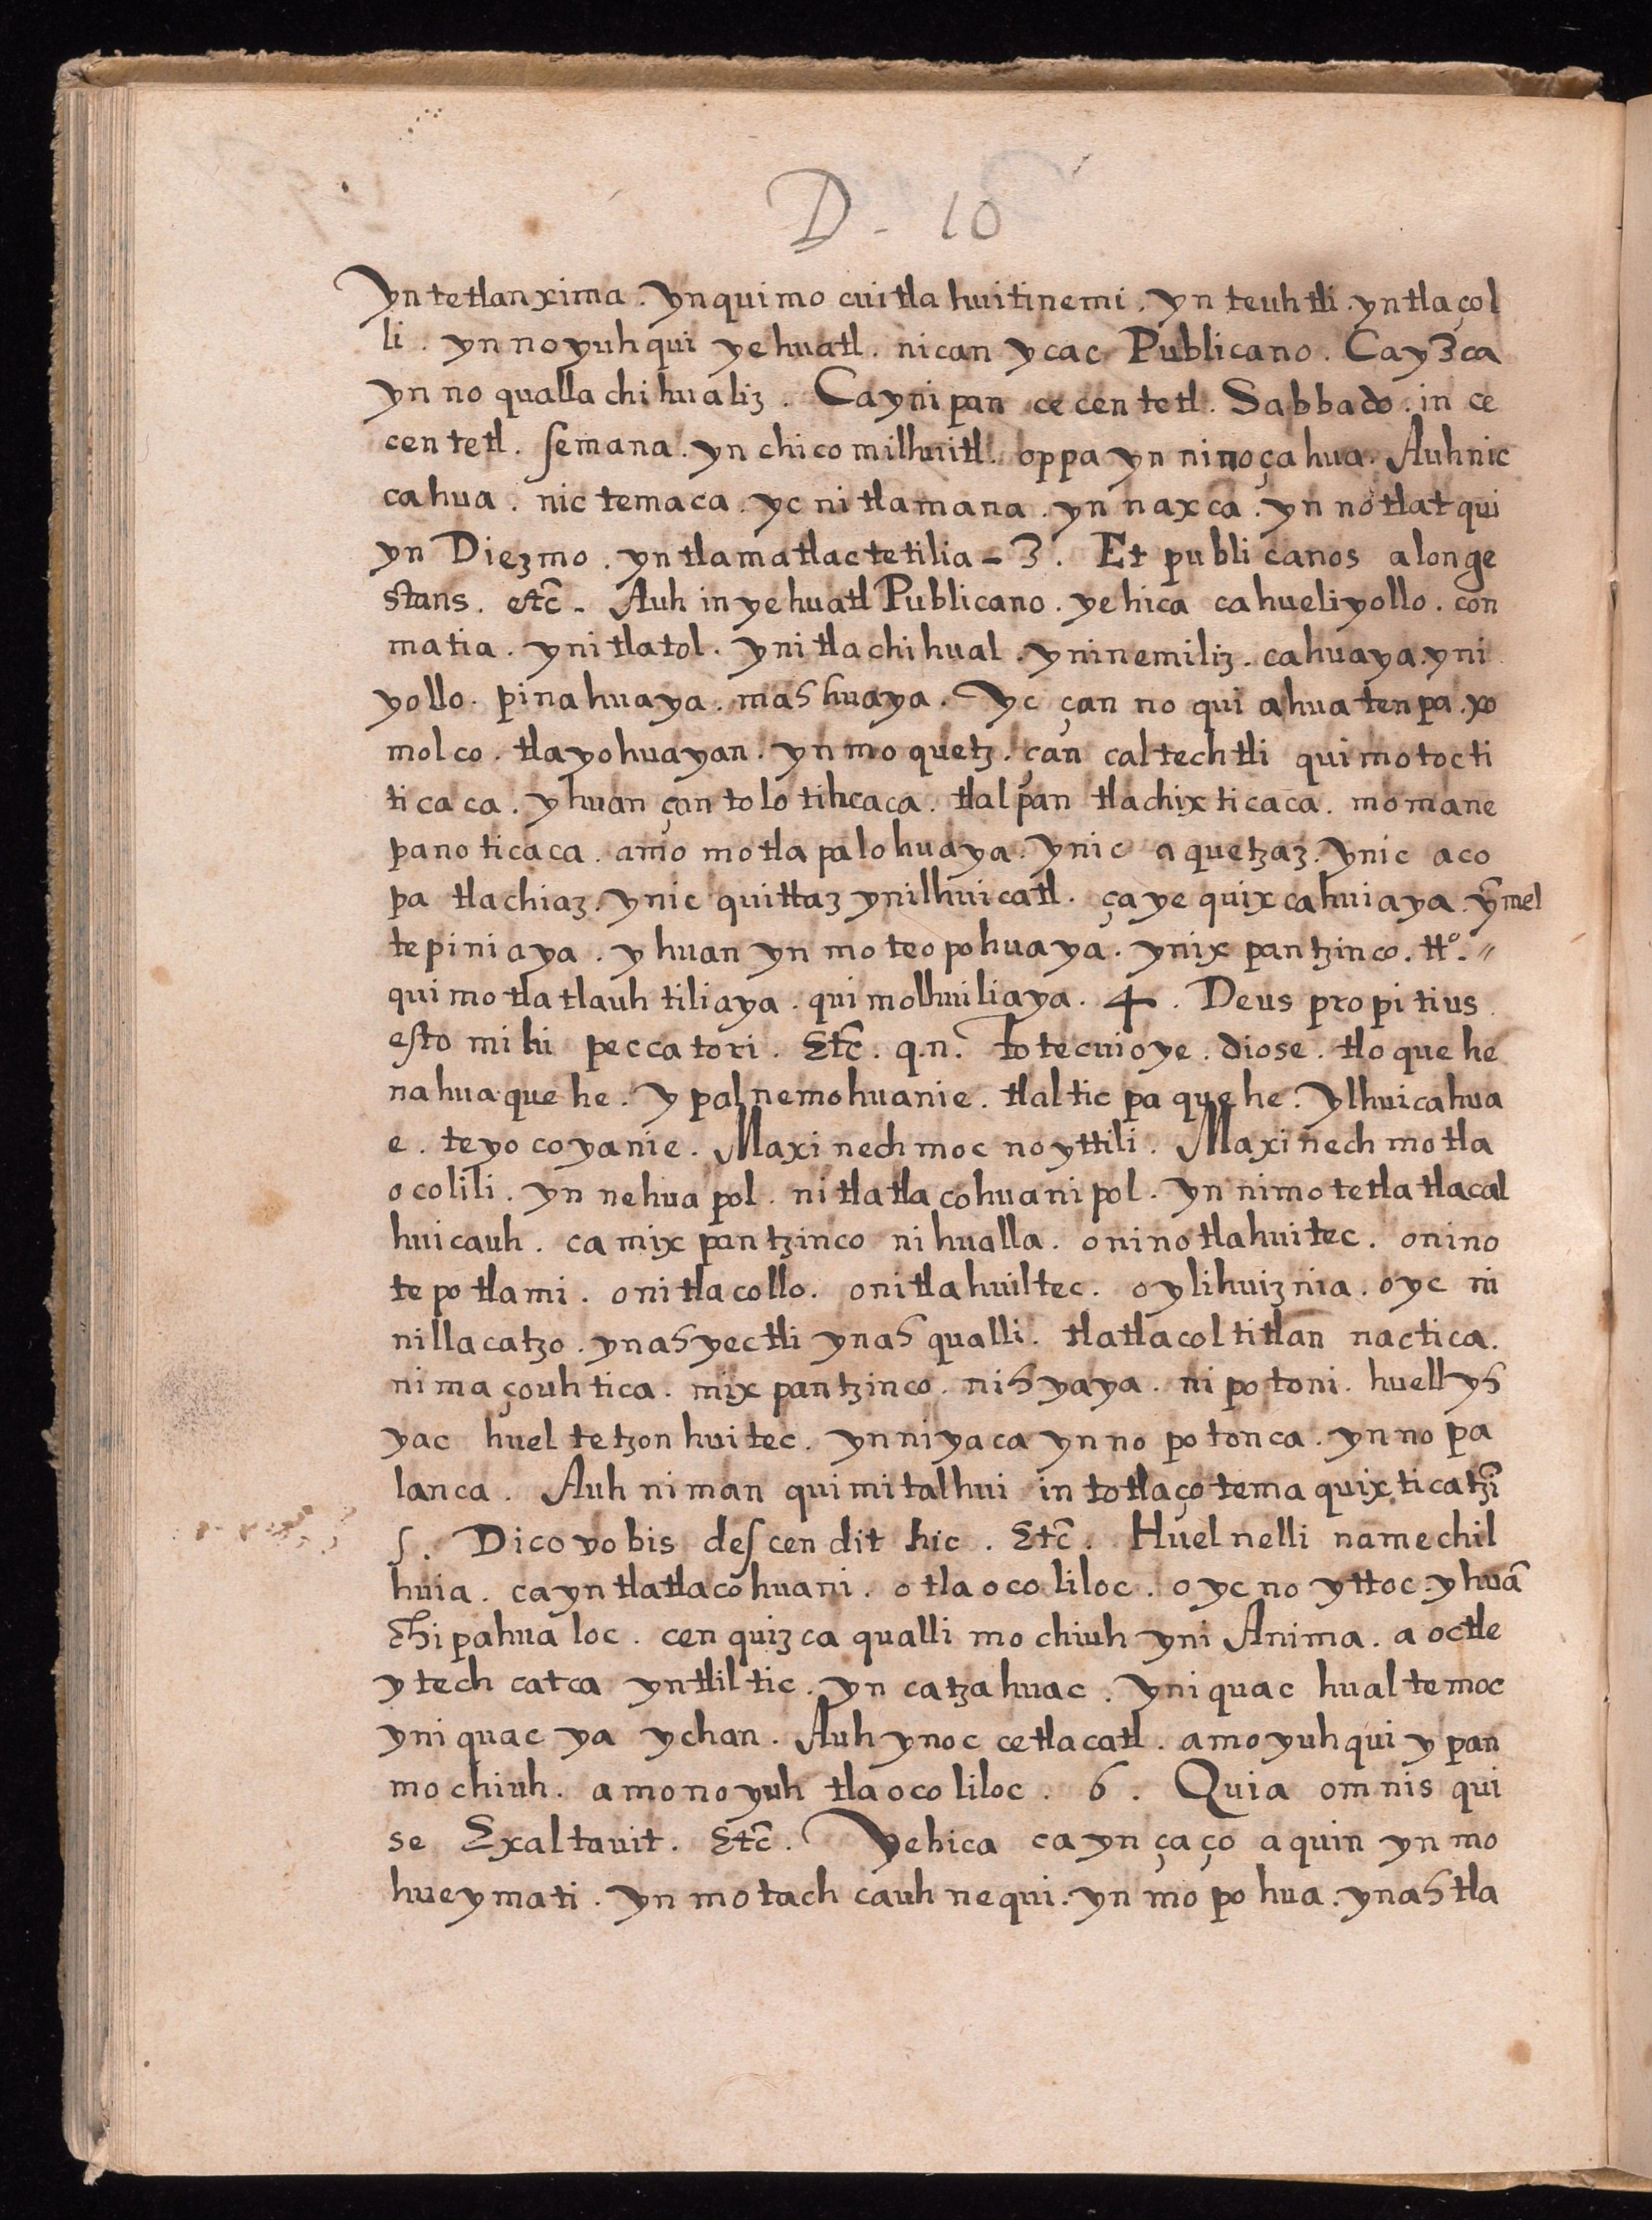 D - 10
yn tetlanxima . yn quimo cuitla huitinemi . yn teuhtli . yn tlaçol
li . yn no yuhqui yehuatl . nican ycac Publicano . Cayzca
yn no qualla chihualiz . Cayni pan cecentetl . Sabbado . in ce
centetl . semana . yn chicomilhuitl . oppa yn ninoçahua . Auh nic
cahua . nic temaca . yc nitlamana . yn naxca . yn notlatqui
yn Diezmo . yn tlamatlactetilia - 3 . Et publicanos a longe
stans . etc̄ - Auh in yehuatl Publicano . yehica ca hueliyollo . con
matia . ynitlatol . ynitlachihual . yninemiliz . cahuaya . yni
yollo . pinahuaya . mashuaya . yc çan no qui ahuatenpa . xo
molco . tlayohuayan . yn moquetz . çan caltechtli quimotocti
ticaca . yhuan çan tolotihcaca . tlalpan tlachixticaca . momane
panoticaca . amo motlapalohuaya . ynic aquetzaz . ynic aco
pa tlachiaz . ynic quittaz ynilhuicatl . ça ye quixcahuiaya . ȳmel
tepiniaya . yhuan yn moteopohuaya . ynixpantzinco . ttº . //
quimotlatlauhtiliaya . quimolhuiliaya . 4 . Deus propitius
esto mihi peccatori . Etc̄ . q.n. Totecuioye . diose . tloquehe
nahuaquehe . ypalnemohuanie . tlalticpaquehe . ylhuicahua
e . teyocoyanie . Maxinechmocnoyttili . Maxinechmotla
ocolili . yn nehuapol . nitlatlacohuanipol . yn nimotetlatlacal
huicauh . ca mixpantzinco nihualla . oninotlahuitec . onino
tepotlami . onitlacollo . onitlahuiltec . oylihuiznia . oyc ni
nillacatzo . ynasyectli ynasqualli . tlatlacoltitlan nactica .
nimaçouhtica . mixpantzinco . nihyaya . nipotoni . huellyh
yac huel tetzonhuitec . yn niyaca yn nopotonca . yn nopa
lanca . Auh niman quimitalhui in totlaçotemaquixticatzī
5 . Dico vobis descendit hic . Etc̄ . Huel nelli namechil
huia . ca yn tlatlacohuani . otlaocoliloc . oycnoyttoc . yhuā
Chipahualoc . cenquizca qualli mochiuh yni Anima . aoctle
ytech catca yn tliltic . yn catzahuac . yniquac hualtemoc
yniquac ya ychan . Auh ynoc cetlacatl . amo yuhqui ypan
mochiuh . amo no yuh tlaocoliloc . 6 . Quia omnis qui
se Exaltauit . Etc̄ . Yehica ca yn çaço aquin yn mo
hueymati . yn motachcauhnequi . yn mopohua . ynastla